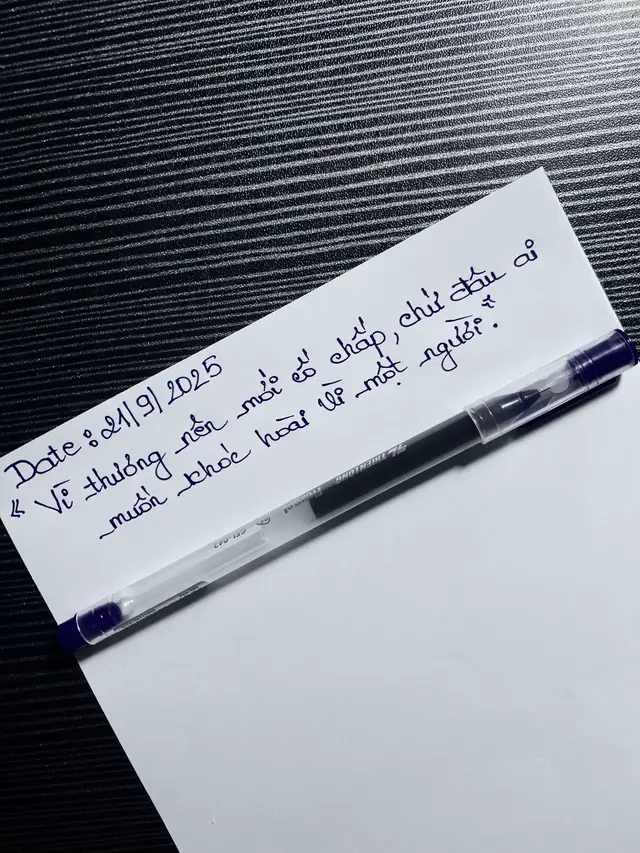 Date: 21/9/2025
"Vì thương nên mới cố chấp, chứ đâu ai
muốn khóc hoài vì một người."
THIEN LONG
GEL-042